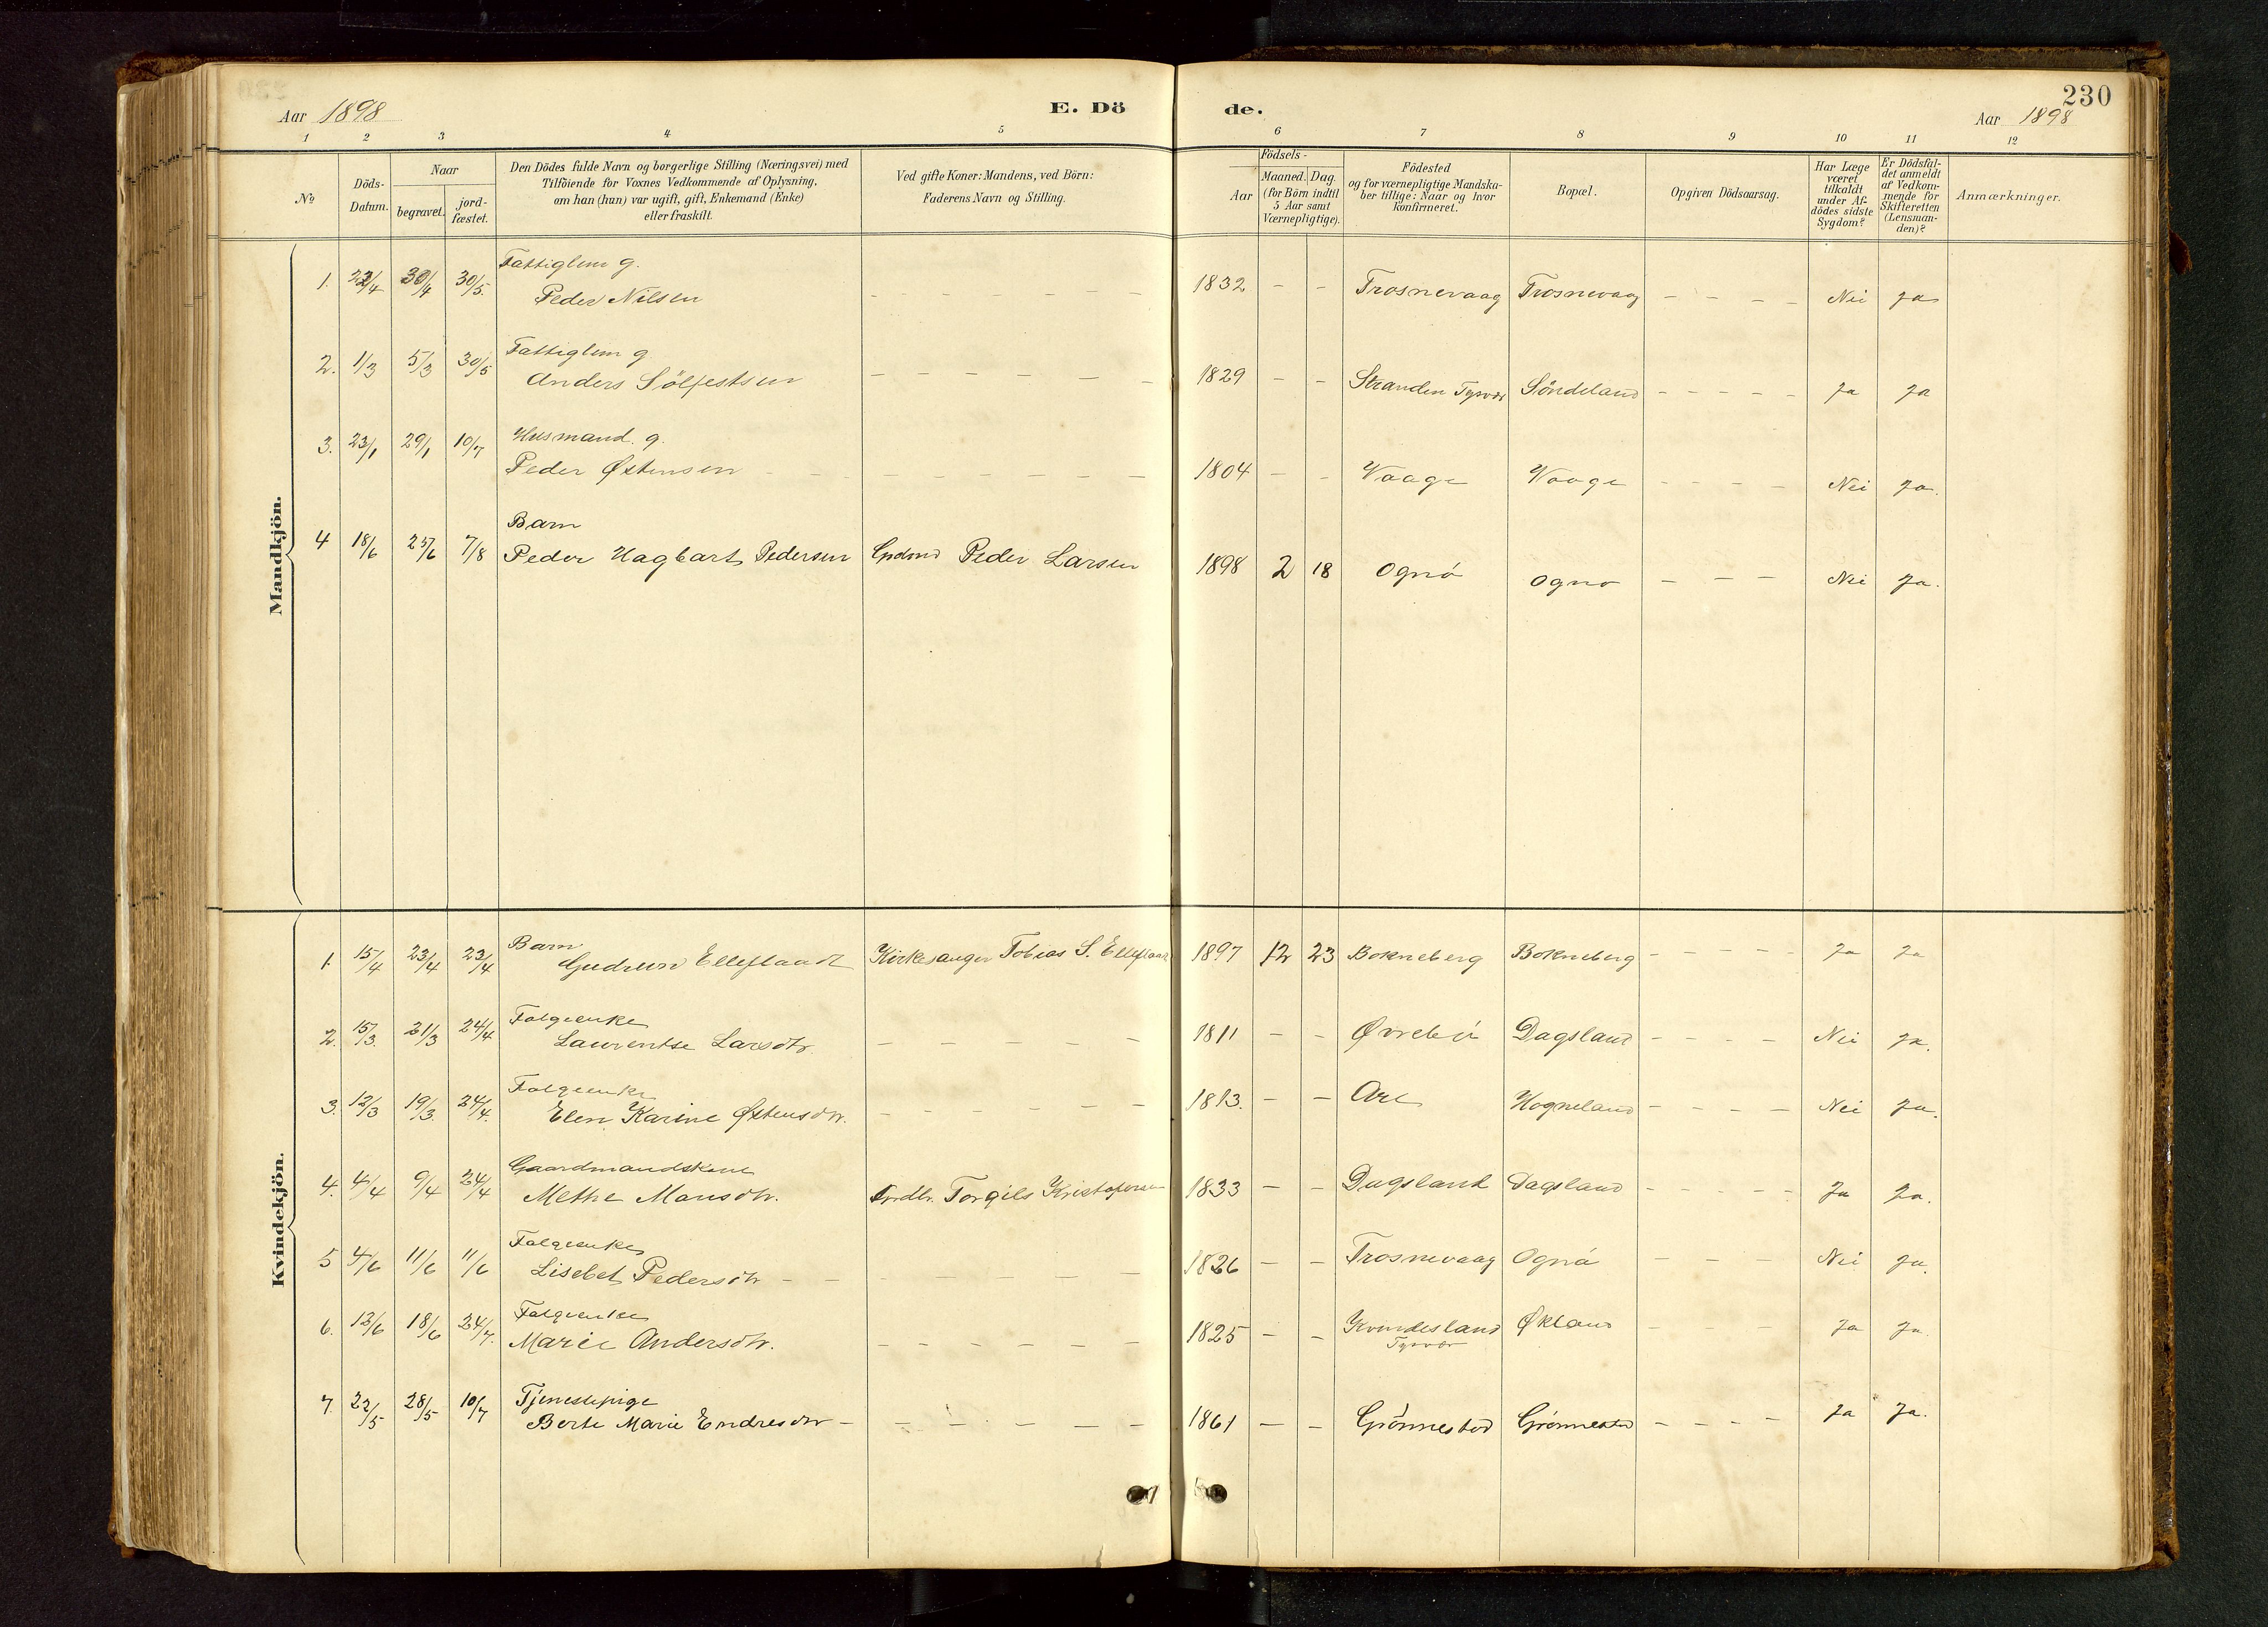 Aar 1898 E. Dö
de. 230
Aar 1898
1 2 3 4 5 6 7 8 9 10 11 12
No
Döds-
Datum.
Naar
begravet.
jord-
fæstet.
Den Dödes fulde Navn og borgerlige Stilling (Næringsvei) med
Tilföiende for Voxnes Vedkommende af Oplysning,
om han (hun) var ugift, gift, Enkemand (Enke)
eller fraskilt.
Ved gifte Koner: Mandens, ved Börn:
Faderens Navn og Stilling.
Födsels-
Aar
Maaned. Dag.
(for Börn indtil
5 Aar samt
Værnepligtige).
Födested
og for værnepligtige Mandska-
ber tillige: Naar og hvor
konfirmeret.
Bopæl.
Opgiven Dödsaarsag.
Har Læge
været
tilkaldt
under Af-
dödes sidste
Sygdom?
Er Dödsfal-
det anmeldt
af Vedkom-
mende for
Skifteretten
(Lensman-
den)?
Anmærkninger.
Mandkjön.
Fattiglem g.
1. 22/4 30/4 30/5. Peder Nilsen - - - - - - 1832 - - Trosnevaag Trosnevaag - - - - Nei Ja
Fattiglem g
2. 1/3 5/3 30/5 Anders Sölfestsen - - - - - - 1829 - - Stranden Tysvær Söndeland - - - - - Ja Ja
Husmand. g.
3. 23/1 29/1 10/7 Peder Østensen - - - - - - - - 1804 - - Vaage Vaage - - - - Nei Ja.
Barn
4 18/6 25/6 7/8 Peder Hagbart Pedersen Grdmd Peder Larsen 1898 2 18 Ognö Ogno - - - Nei Ja.
Kvindekjön.
Barn
1. 15/4 23/4 23/4 Gudrun Elleflaadt Kirkesanger Tobias S. Elleflaadt 1897 12 23 Bokneberg Bokneberg - - - - Ja Ja
Folgeenke
2. 15/3. 21/3 24/4 Laurentse Larsdtr. - - - - - - 1811 - - Øvrebö Dagsland - - - - Nei Ja.
Folgeenke
3. 12/3 19/3. 24/4. Elen Karine Østensdtr. - - - - - - 1813. - - Are Hogneland - - - - Nei Ja.
Gaardmandskone
4. 4/4 9/4 24/4 Methe Monsdtr. Grdbr. Torgils Kristofersen 1833 - - Dagsland Dagsland - - - - - Ja Ja.
Folgeenke
5 4/6 11/6 11/6 Lisebet Pedersdtr - - - - - - - 1826 - - Trosnevaag Ognö - - - Nei Ja.
Folgeenke
6. 12/6 18/6 24/7. Marie Andersdtr. - - - - - - 1825 - - Kvindesland Økland - - - Ja Ja.
Tysvær
Tjenestepige
7. 22/5 28/5 10/7 Berte Marie Endresdtr - - - - - - - 1861 - - Grönnestad Grönnestad - - - - Ja Ja.